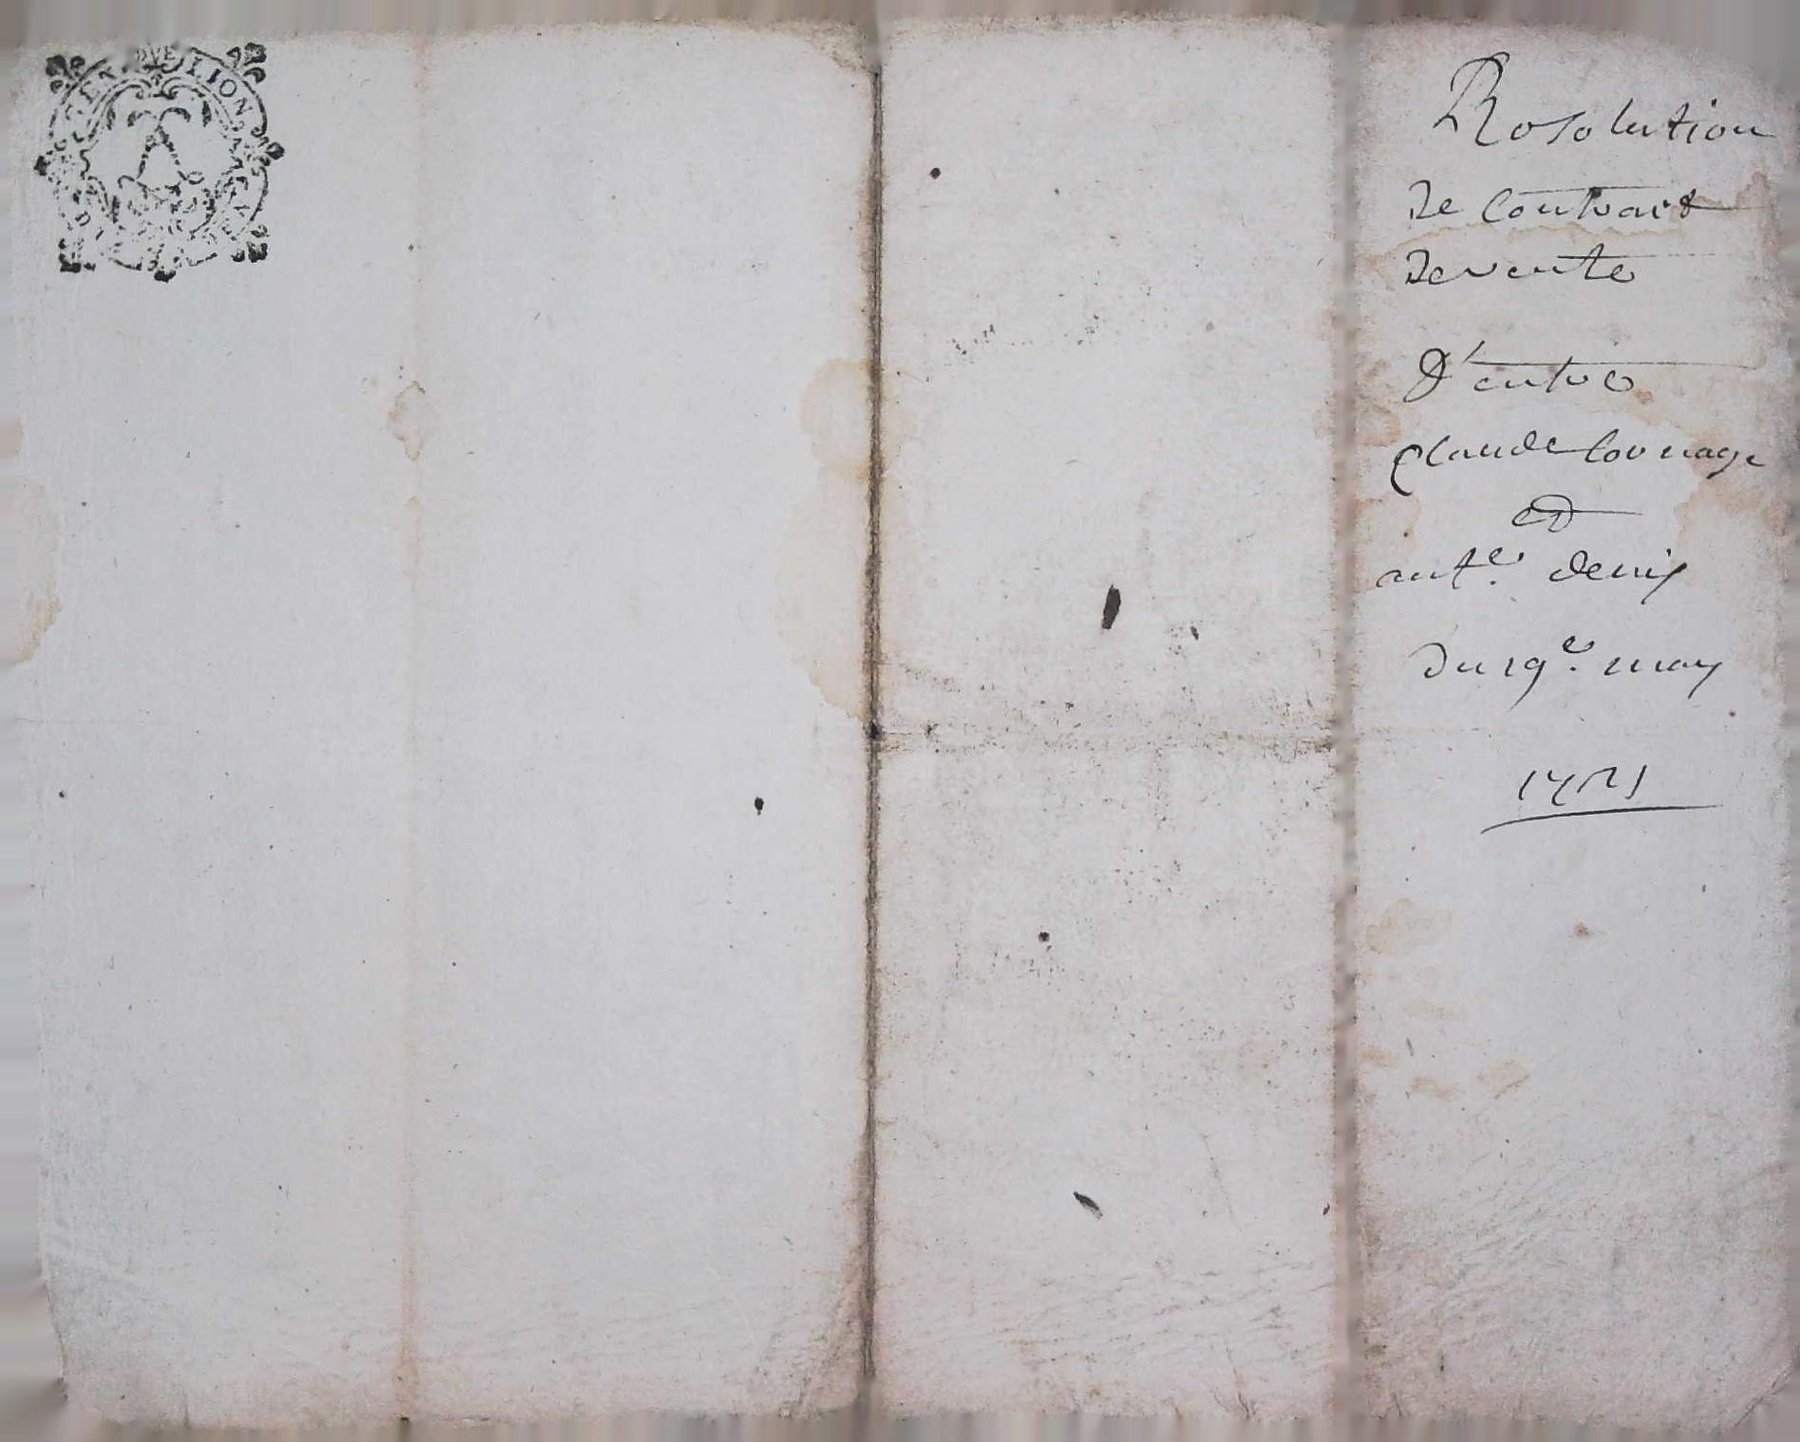 LION
Resolution
De Contract
De vente
D'entre
Claude Cornage
et
ant.e denis
Du 19.e may
1721